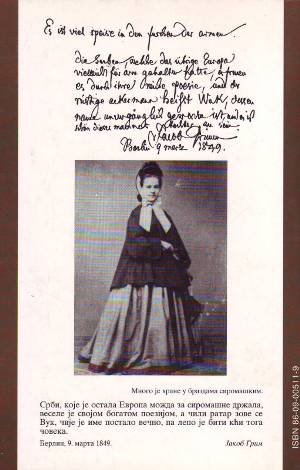 Es ist viel speise in den furchen der armen.
die Serben, welche das übrige Europa
vielleicht für arm gehalten hatte, erfreuen
es durch ihre reiche poesie, und der
rüstige ackermann heißt Wuk, dessen
name unvergänglich geworden ist, und es ist
Jacob Grimm
Berlin 9 merz 1849.
Много је хране у браздама сиромашким.
Срби, које је остала Европа можда за сиромашне држала,
веселе је својом богатом поезијом, а чили ратар зове се
Вук, чије је име постало вечно, па лепо је бити кћи тога
човека.
Берлин, 9. марта 1849. Јакоб Грим
ISBN 86-09-00511-9